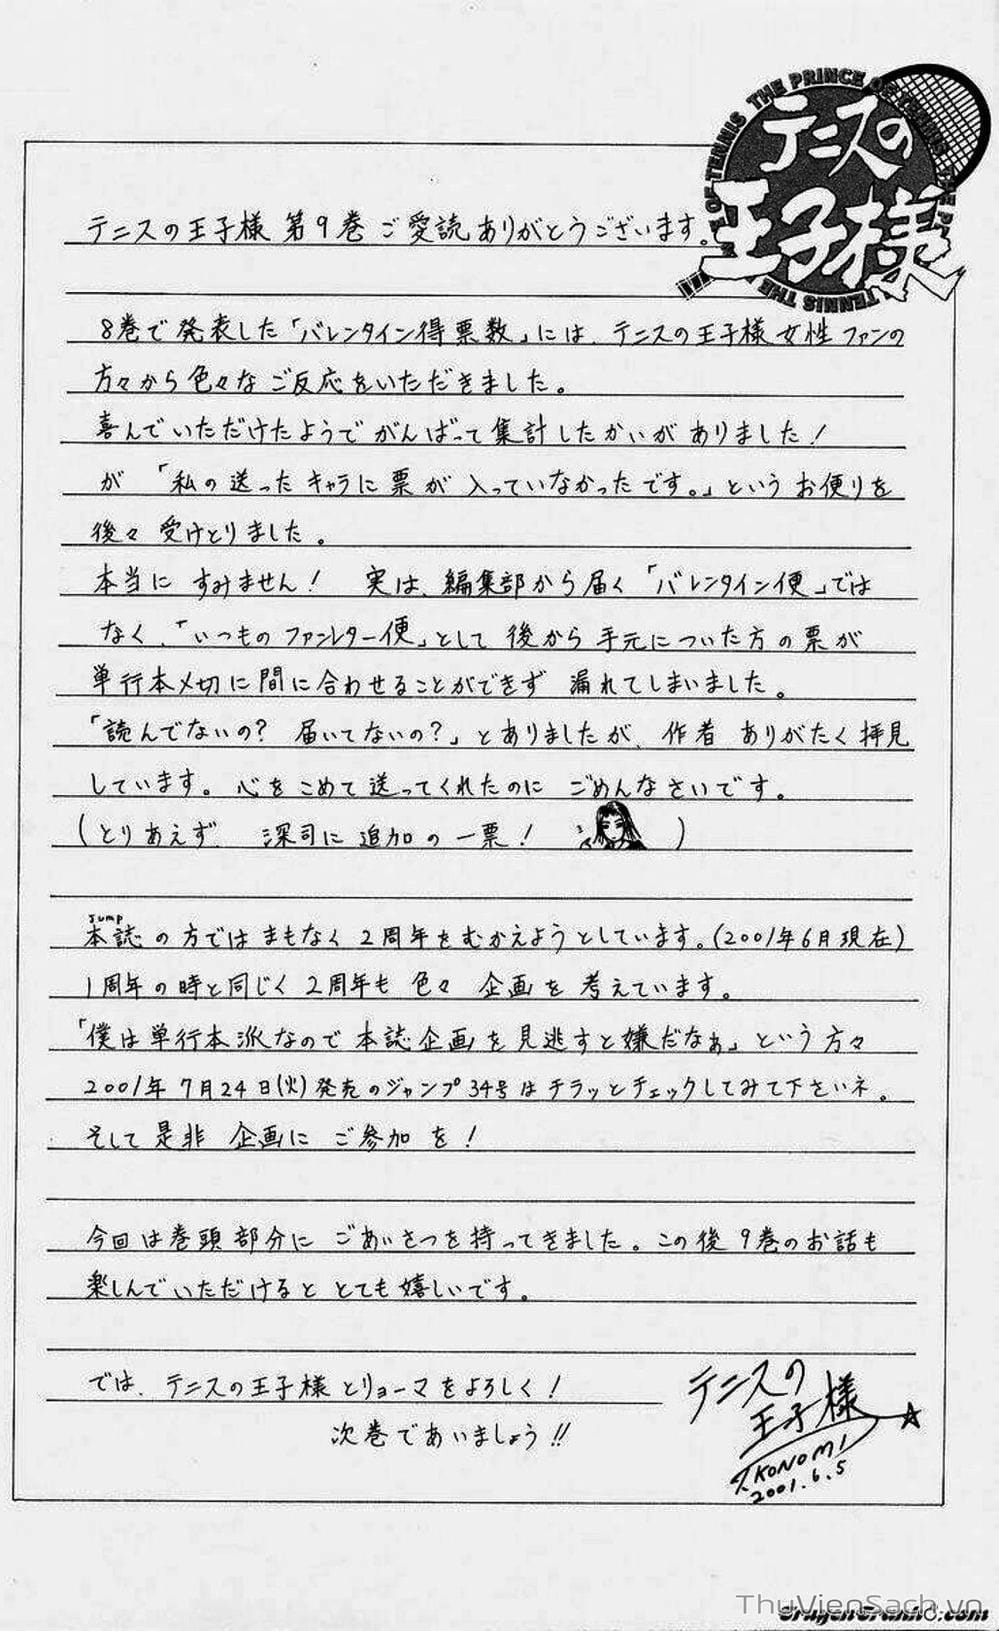 THE PRINCE OF TENNIS
テニスの
王子様
テニスの王子様 第9巻 ご愛読ありがとうございます。
8巻で発表した「バレンタイン得票数」には、テニスの王子様女性ファンの
方々から色々なご反応をいただきました。
喜んでいただけたようでがんばって集計したかいがありました!
が「私の送ったキャラに票が入っていなかったです。」というお便りを
後々受けとりました。
本当にすみません! 実は、編集部から届く「バレンタイン便」では
なく、「いつものファンレター便」として後から手元についた方の票が
単行本〆切に間に合わせることができず 漏れてしまいました。
「読んでないの? 届いてないの?」とありましたが、作者ありがたく拝見
しています。心をこめて送ってくれたのに ごめんなさいです。
(とりあえず、深司に追加の一票! )
Jump
本誌の方ではまもなく2周年をむかえようとしています。(2001年6月現在)
1周年の時と同じく2周年も色々企画を考えています。
「僕は単行本派なので本誌企画を見逃すと嫌だなぁ」という方々
2001年7月24日(火)発売のジャンプ34号はチラッとチェックしてみて下さいネ。
そして是非 企画に ご参加を!
今回は巻頭部分に ごあいさつを持ってきました。この後9巻のお話も
楽しんでいただけると とても嬉しいです。
では、テニスの王子様とリョーマをよろしく!
次巻であいましょう!!
テニスの
王子様
T.KONOMI
2001.6.5
ThuVienSach.vn